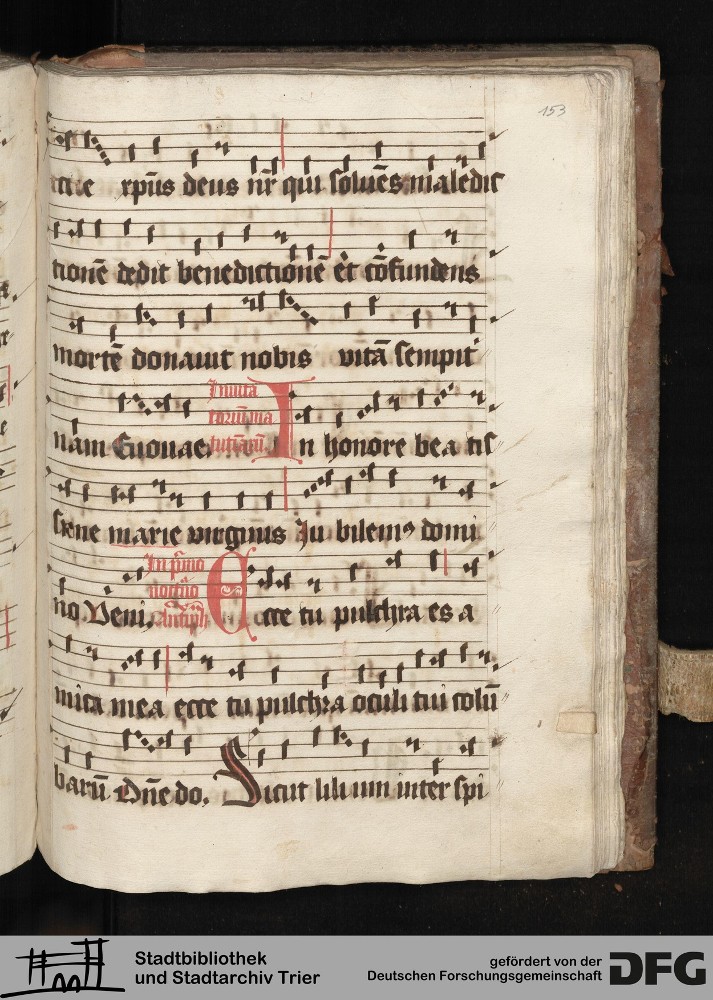 153
xpūs deus nr̄ qui soluēs maledic
tionē dedit benedictionē et cōfundens
mortē donauit nobis vitā sempit
nam Euouae. Inuita
In honore bea tis
sime marie virginis Iu bilemꝰ domi
no Veni. In p̄mo
Ecce tu pulchra es a
mica mea ecce tu pulchra oculi tui colū
barū Dn̄e do. Sicut lilium inter spi
Stadtbibliothek
und Stadtarchiv Trier
gefördert von der
Deutschen Forschungsgemeinschaft
DFG